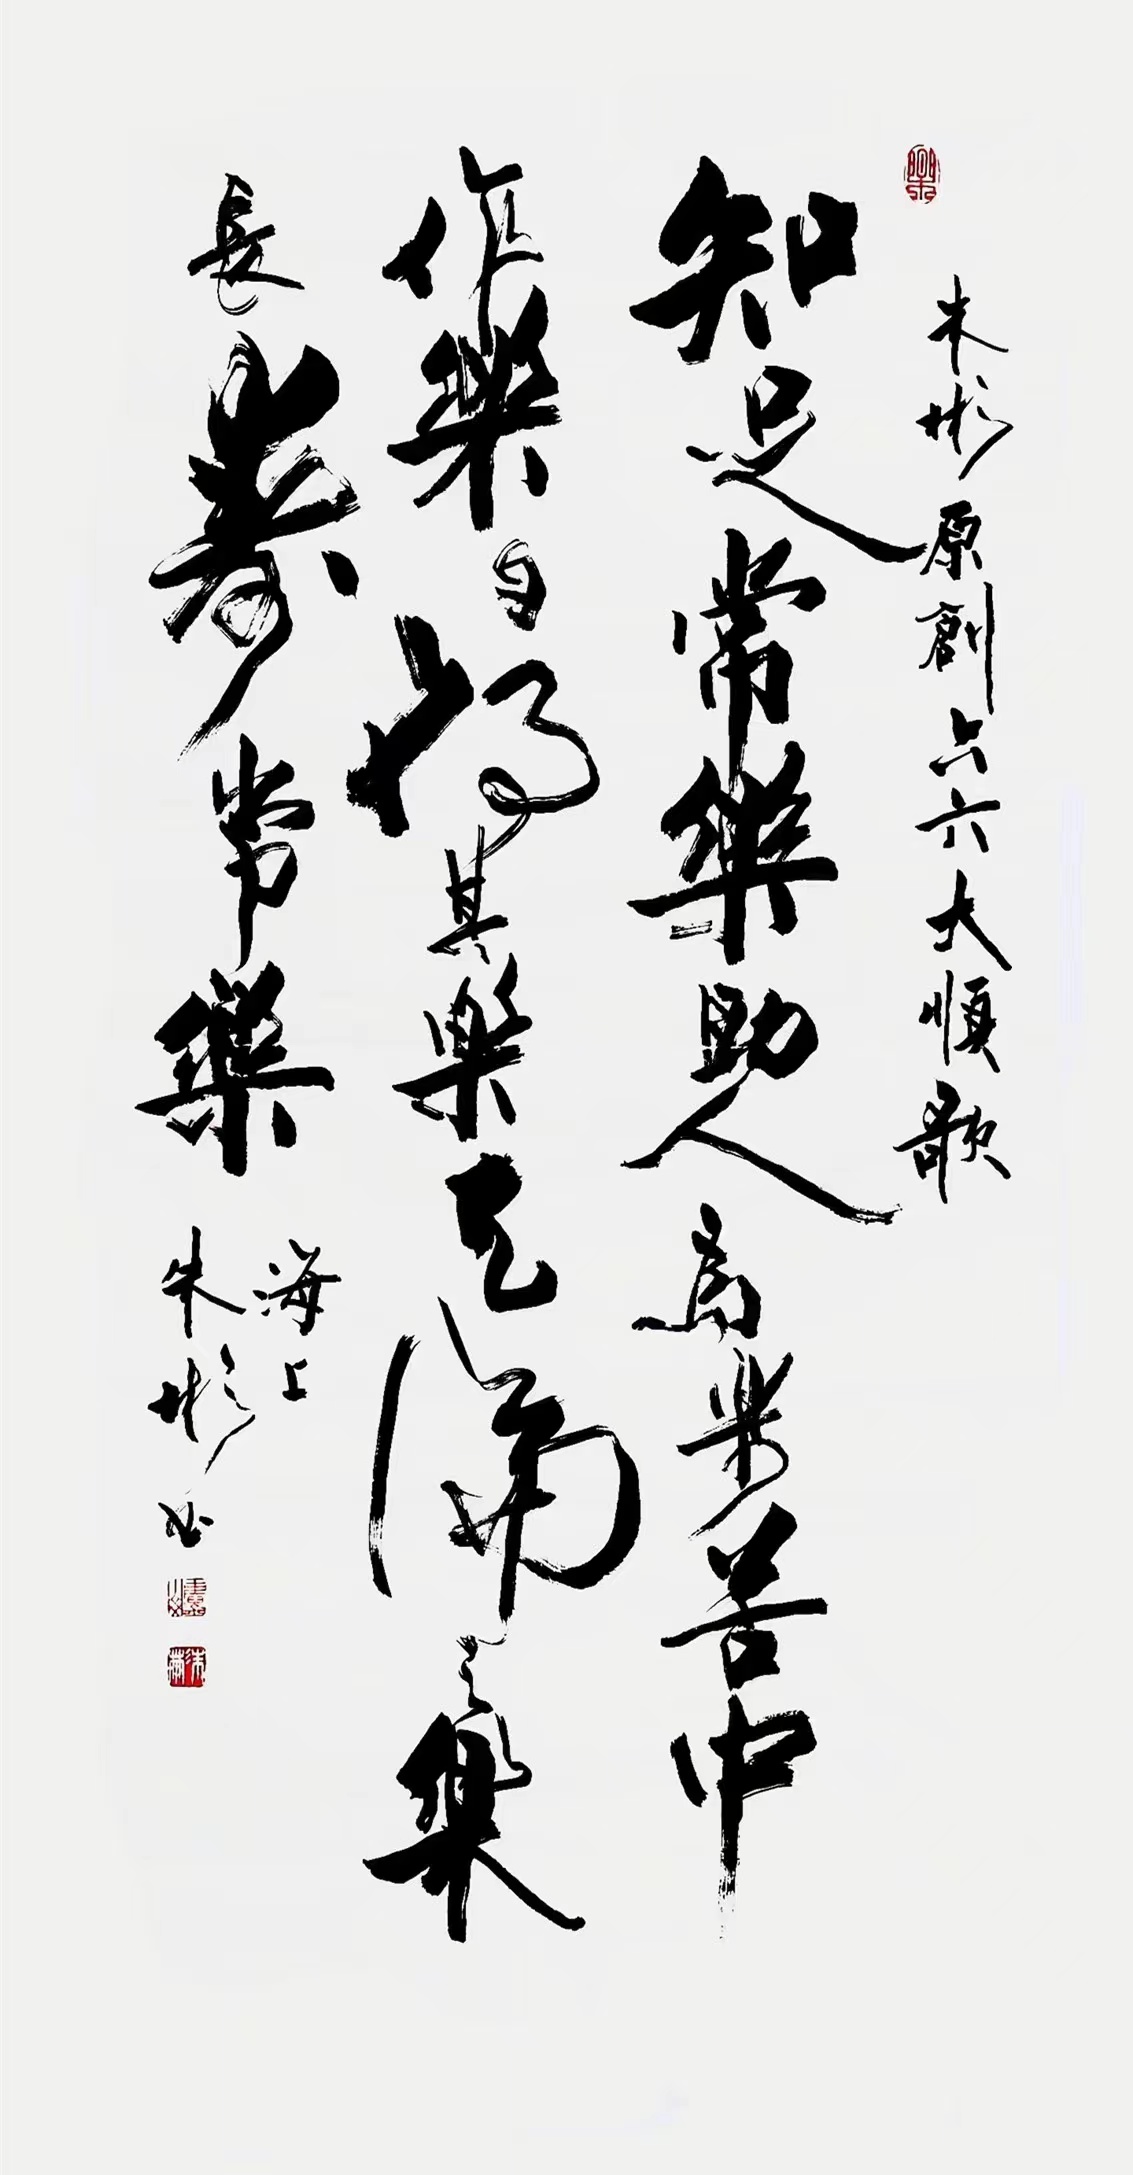 樂
朱彬原創六六大順歌
知足常樂助人為樂苦中
作樂自得其樂天倫之樂
長壽常樂
海上
朱彬书